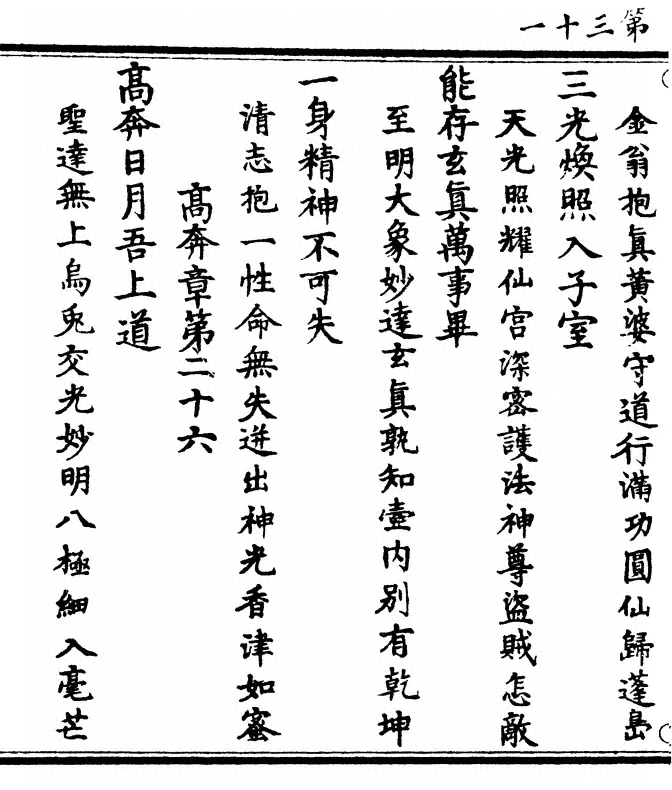 第三十一
金翁抱眞黄婆守道行滿功圓仙歸蓬島
三光煥照入子室
天光照耀仙宫深密護法神尊盜賊怎敵
能存玄眞萬事畢
至明大象妙達玄眞孰知壺内别有乾坤
一身精神不可失
清志抱一性命無失迸出神光香津如蜜
髙奔章第二十六
髙奔日月吾上道
聖達無上烏兎交光妙明八極細入毫芒